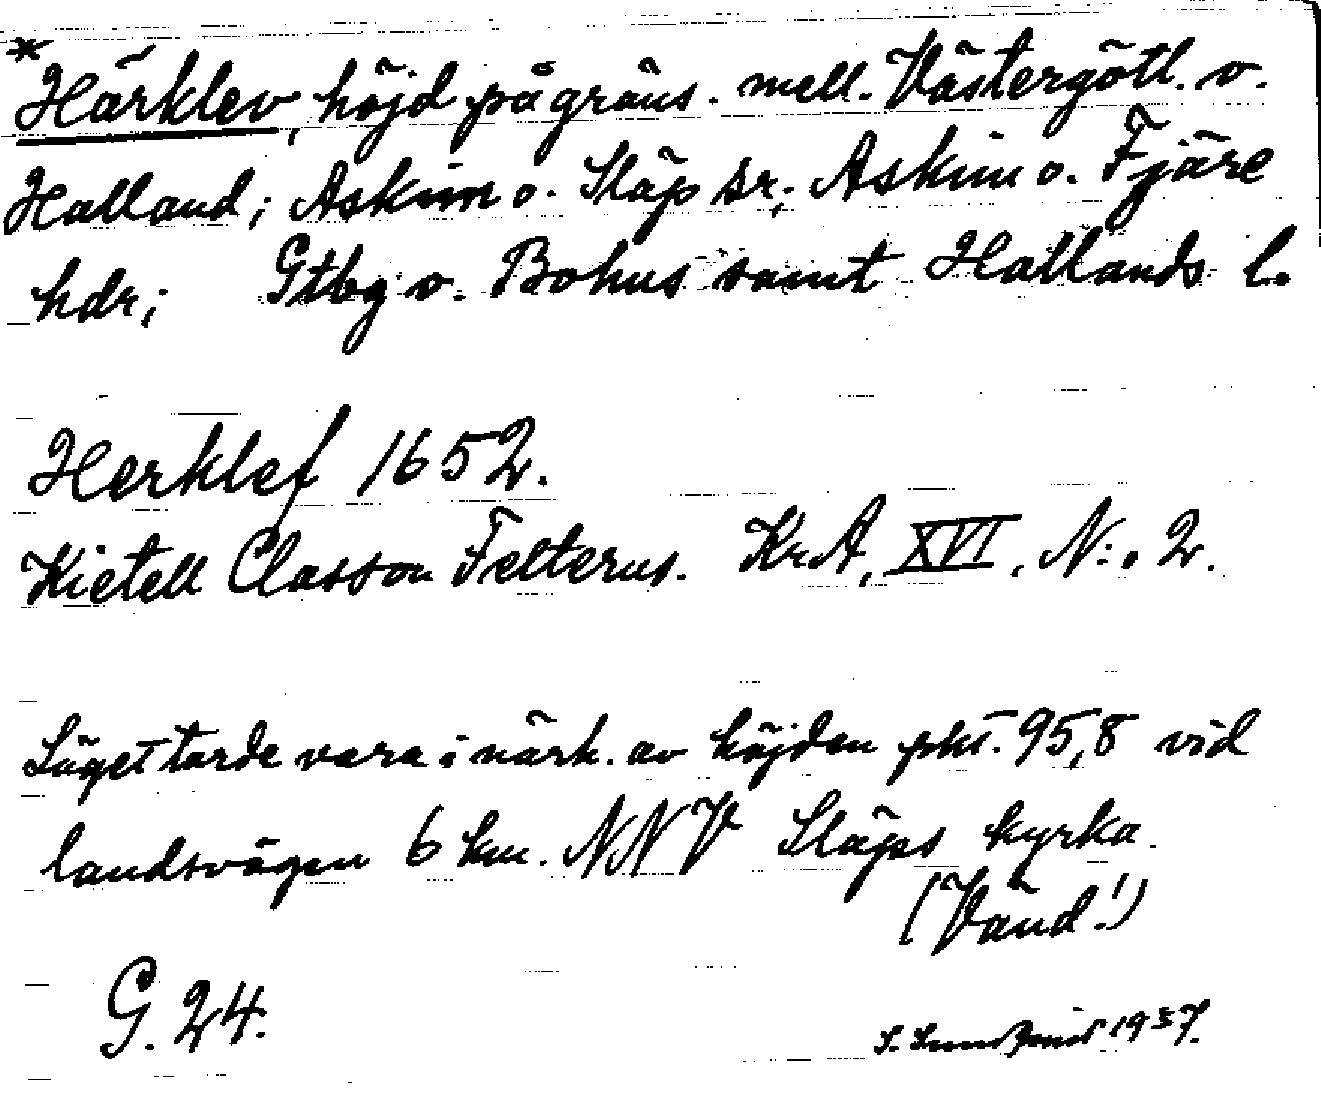 *Härklev, höjd på gräns. mell. Västergötl. o.
Halland; Askim o. Släp sr; Askim o. Fjäre
hdr; Gtbg o. Bohus samt Hallands l.
Herklef 1652.
Kietell Classon Felterus. KrA, XVI, N:. 2.
Läget torde vara i närh. av höjden pkt. 95,8 vid
landsvägen 6 km. NNV Släps kyrka.
(Vänd!)
G. 24.
S. 1937.